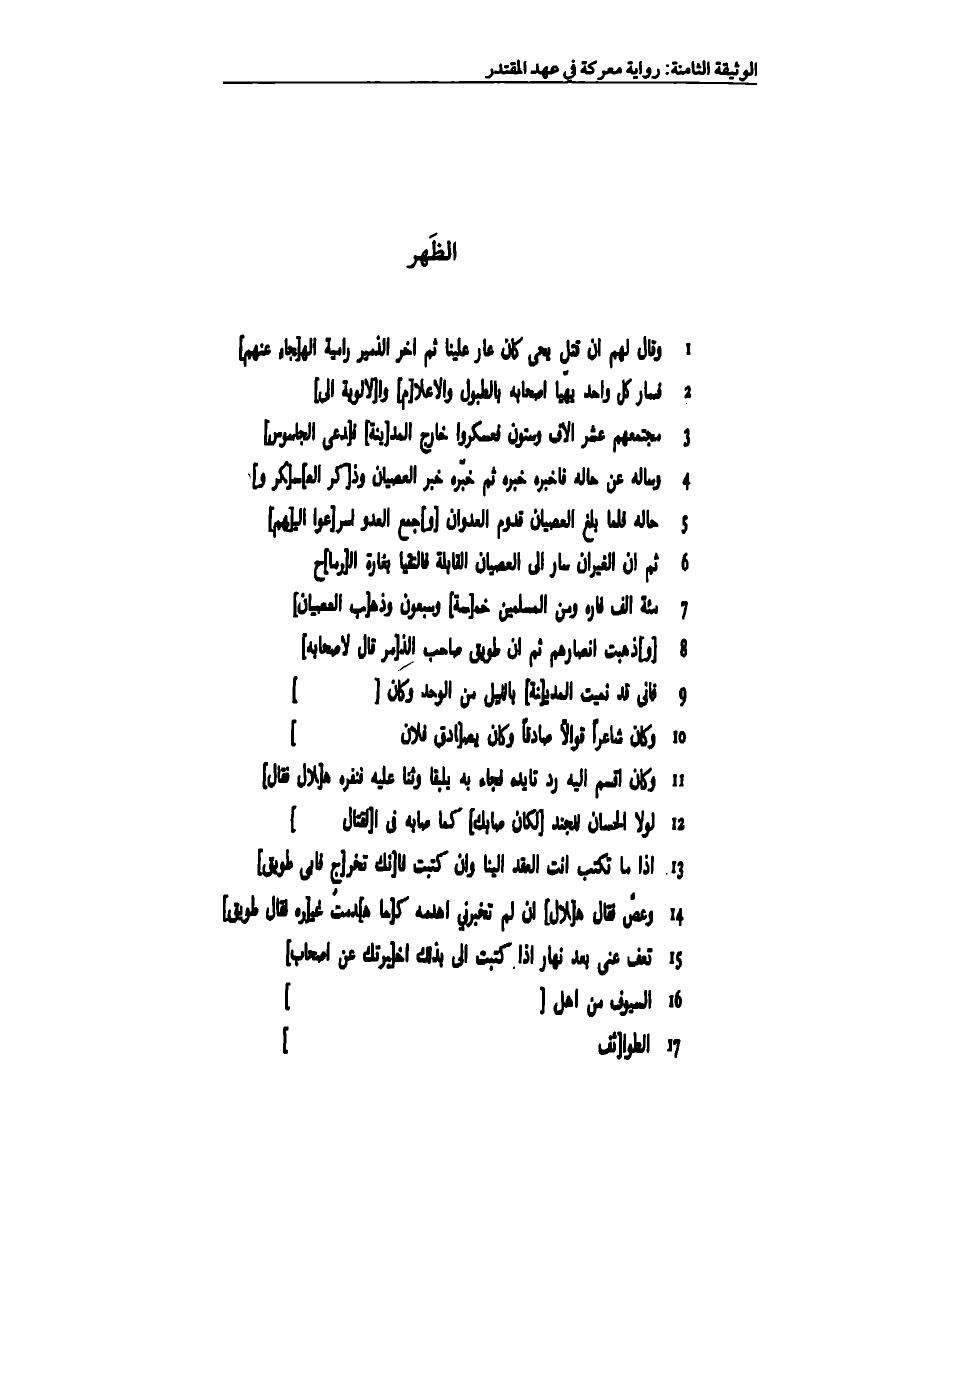 الوثيقة الثامنة: رواية معركة في عهد المقتدر
الظَهر
1 وقال لهم ان قتل يحى كان عار علينا ثم اخر الذمير رامية اله[جاء عنهم]
2 فسار كل واحد يهّيا اصحابه بالطبول والاعلا[م] وا[لالوية الى]
3 مجتمعهم عشر الاف وستون فعسكروا خارج المد[ينة] ف[دعى الجاسوس]
4 وساله عن حاله فاخبره خبره ثم خبّره خبر العصيان وذ[كر الع]س[كر و]
5 حاله فلما بلغ العصيان قدوم العدوان [و]جمع العدو اسر[عوا الي[هم]
6 ثم ان الفيران سار الى العصيان القابلة فالتقيا بغارة ال[رما]ح
7 مئة الف فاره ومن المسلمين خم[سة] وسبعون وذه[ب العصيان]
8 [و]ذهبت انصارهم ثم ان طويق صاحب الذ[مر قال لاصحابه]
9 فانى قد نميت المدي[نة] بالليل من الوحد وكان [ ]
10 وكان شاعراً قوالاً صادقاً وكان يصا[دق فلان ]
11 وكان اقسم اليه رد تايده فجاء به يلبقا وثنا عليه فنفره ه[لال فقال]
12 لولا الحسان للجند [لكان صابك] كما صابه فى ا[لقتال ]
13 اذا ما تكتب انت العقد الينا وان كتبت فا[نك تخر[ج فابى طويق]
14 وعصّ فقال ه[لال] ان لم تخبرني اهدمه ك[ما ه]دمتُ غي[ره فقال طويق]
15 تعف عنى بعد نهار اذا كتبت الى بذلك اخ[برتك عن اصحاب]
16 السيوف من اهل [ ]
17 الطوا[ئف ]